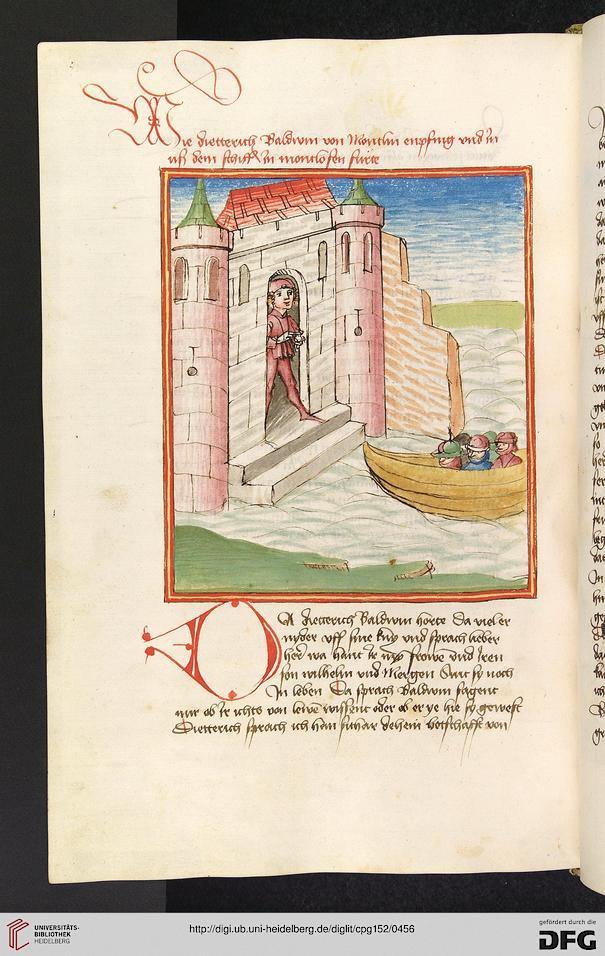 Wie dietterich Baldwin von Montlin enpfing vnd in
uß dem schiff in montlosen furte
DA dietterich Baldwin horte da viel er
nyder vff sine knye vnd sprach lieber
her wa hant ir myn frowe vnd iren
son wilhelm vnd Mergen Sint sy noch
In leben Da sprach Baldwin sagent
mir ob ir ichts von wissent oder ob er ye hie sy gewest
Dietterich sprach ich han sithar dehein botschafft von
UNIVERSITÄTS-
BIBLIOTHEK
HEIDELBERG
http://digi.ub.uni-heidelberg.de/diglit/cpg152/0456
gefördert durch die
DFG